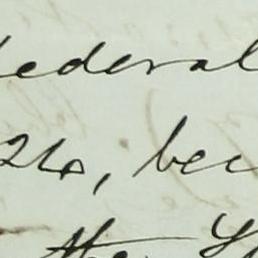 ederal
26, bec
the